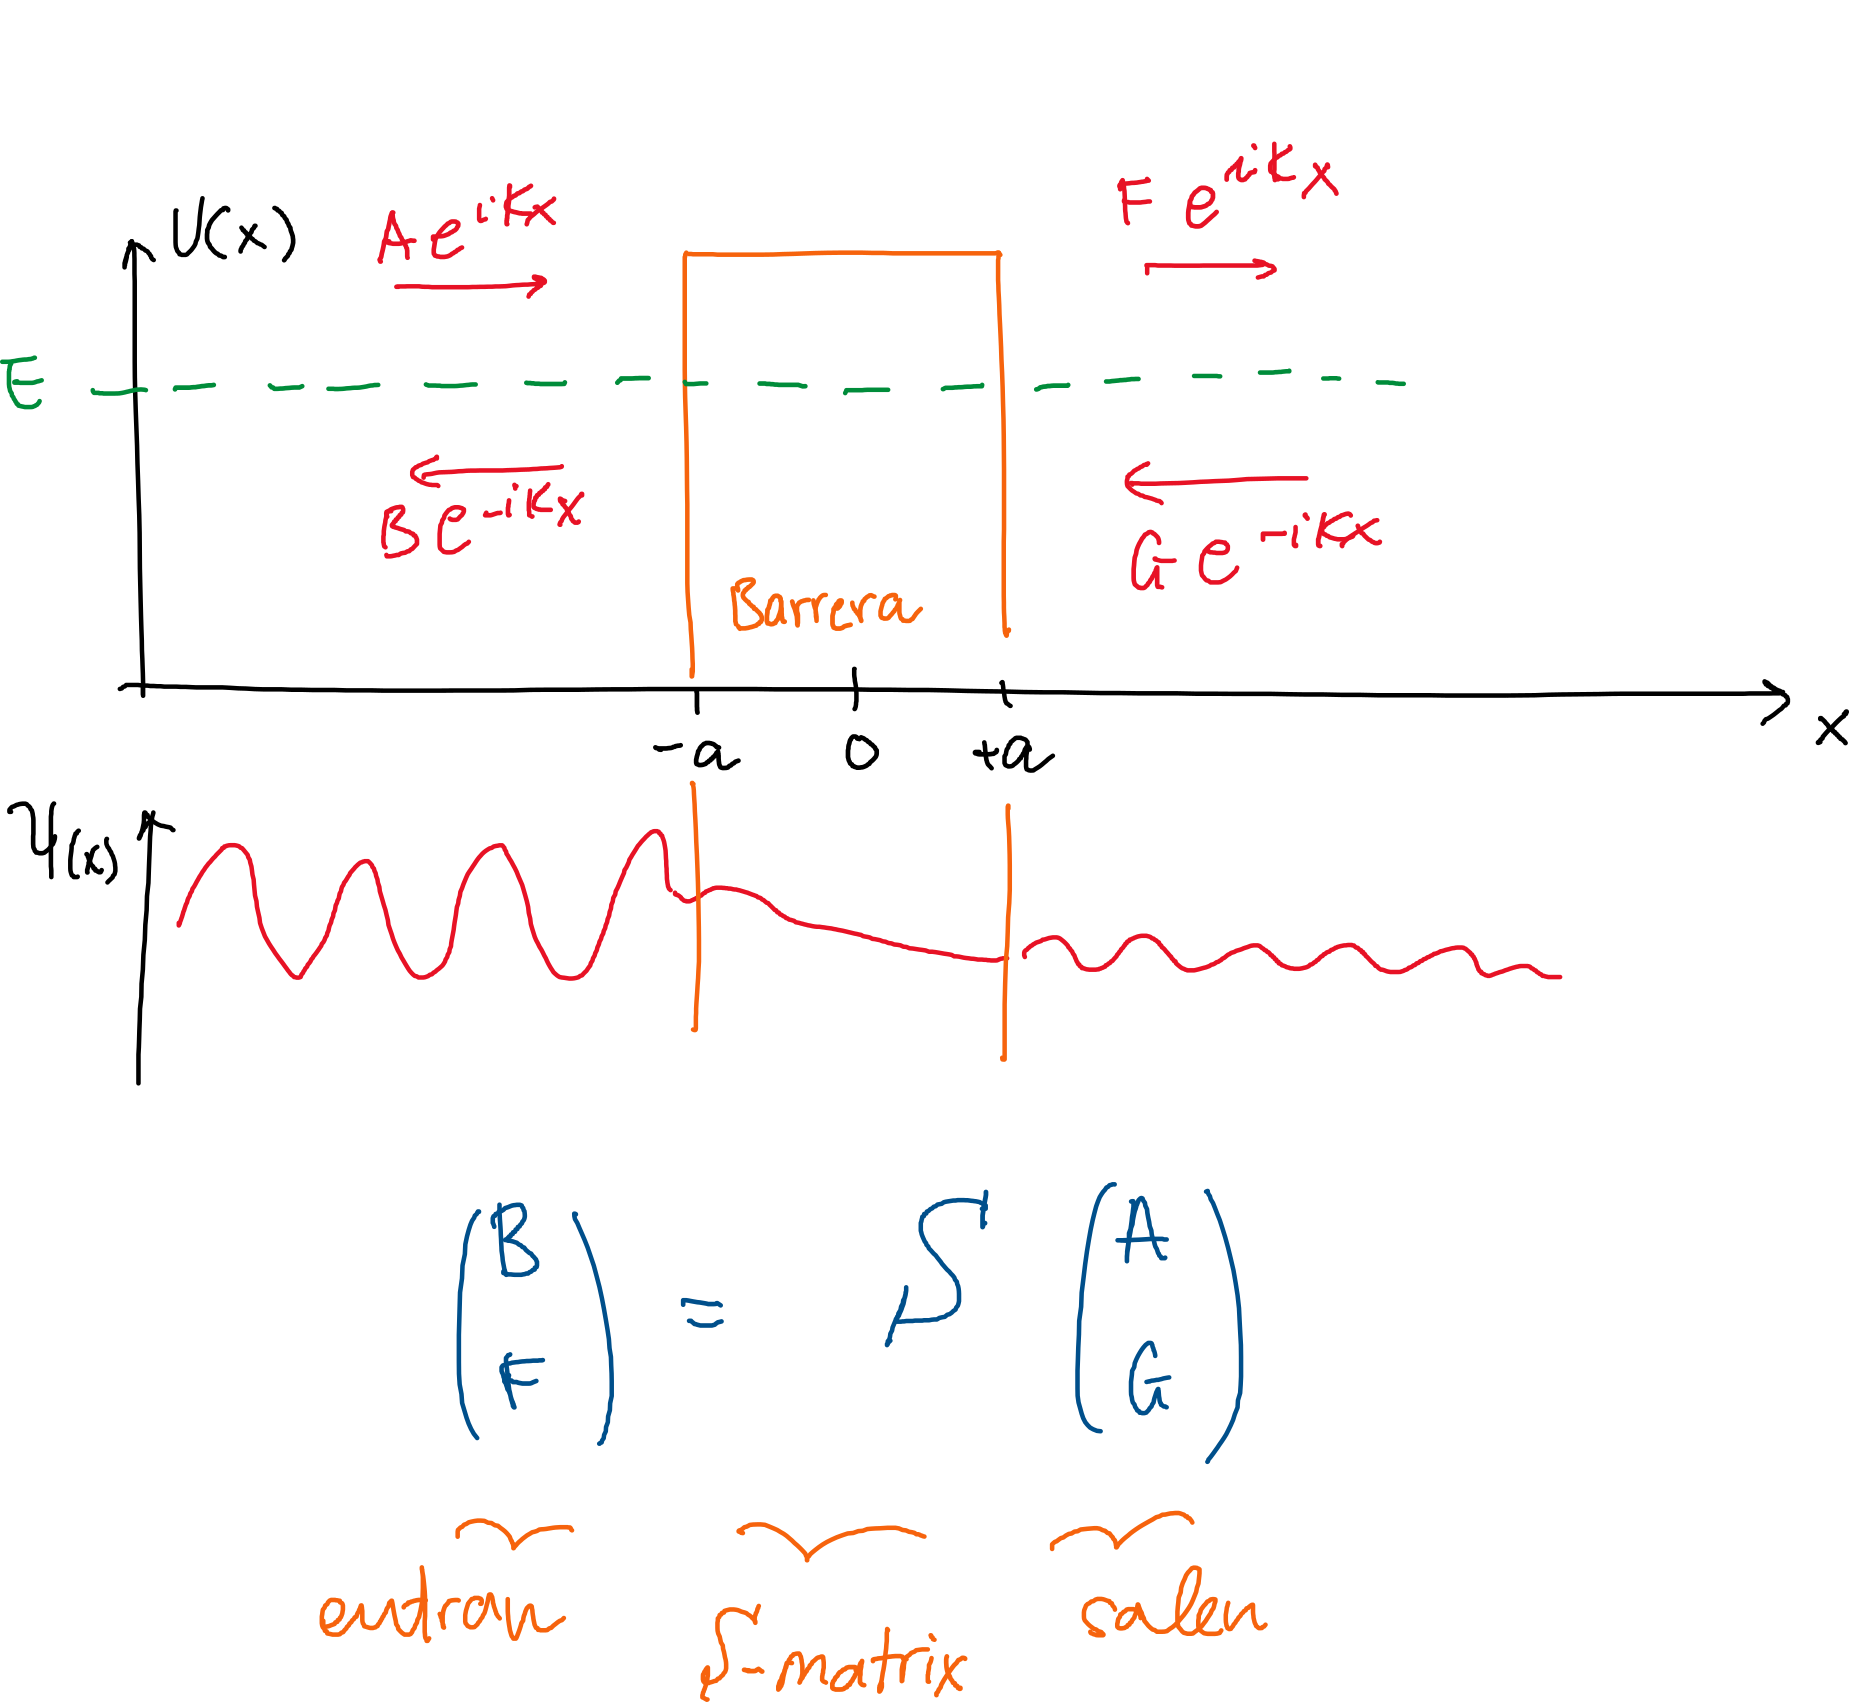 U(x) A e^{ikx} F e^{ikx}
E
B e^{-ikx} G e^{-ikx}
Barrera
-a 0 +a x
ψ(x)
(B F) = S (A G)
entran S-matrix salen